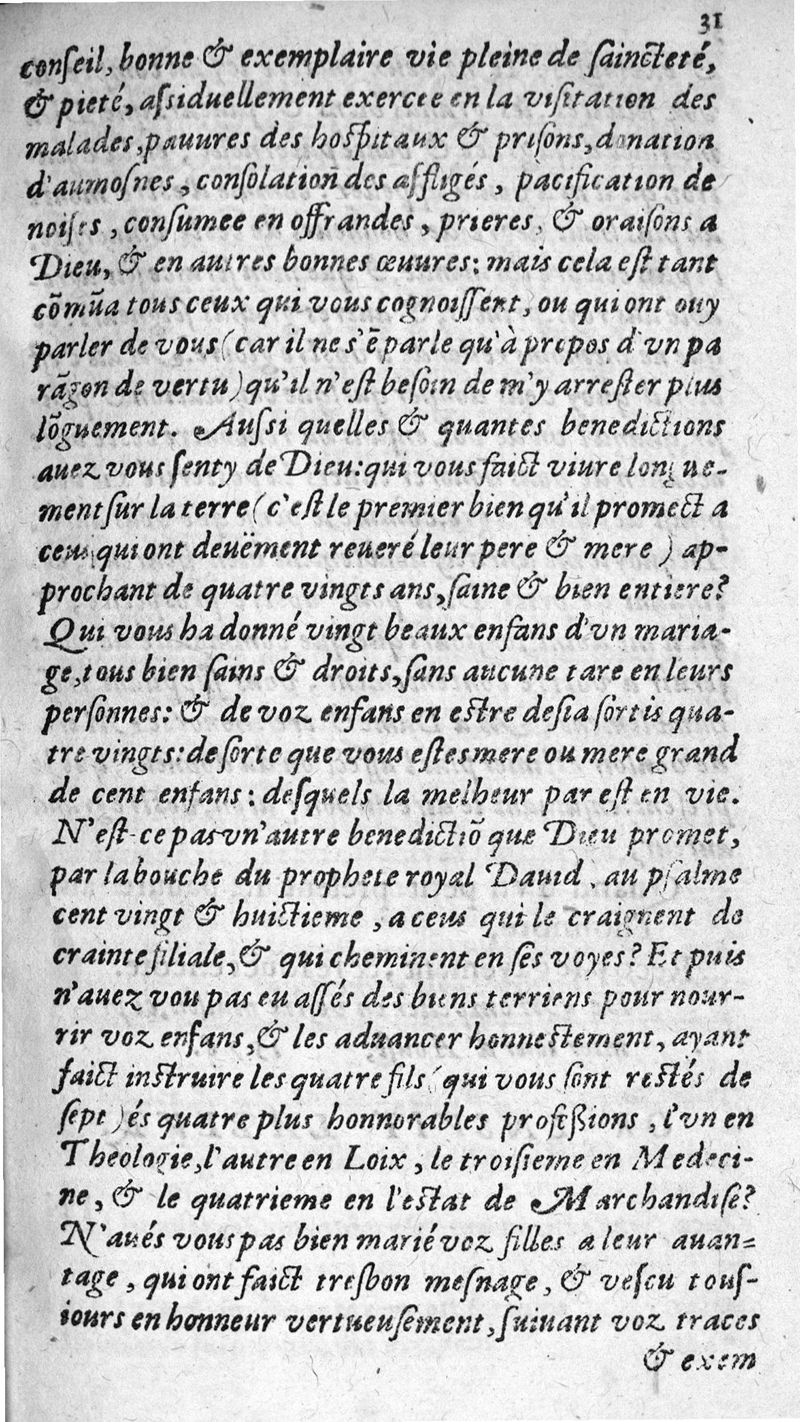 31
conſeil, bonne & exemplaire vie pleine de ſainčteté,
& pieté, aſsiduellement exercee en la viſitation des
malades, pauures des hoſpitaux & priſons, donation
d'aumoſnes, conſolation des affligés, pacification de
noiſes, conſumee en offrandes, prieres, & oraiſons a
Dieu, & en autres bonnes œuures: mais cela eſt tant
cõmũ a tous ceux qui vous cognoiſſent, ou qui ont ouy
parler de vous (car il ne s'ẽ parle qu'à propos d'vn pa
rãgon de vertu) qu'il n'eſt beſoin de m'y arreſter plus
lõguement. Auſsi quelles & quantes benedictions
auez vous ſenty de Dieu: qui vous faict viure longue-
ment ſur la terre (c'eſt le premier bien qu'il promect a
ceus qui ont deuëment reueré leur pere & mere) ap-
prochant de quatre vingts ans, ſaine & bien entiere?
Qui vous ha donné vingt beaux enfans d'vn maria-
ge, tous bien ſains & droits, ſans aucune tare en leurs
perſonnes: & de voz enfans en eſtre deſia ſortis qua-
tre vingts: de ſorte que vous eſtes mere ou mere grand
de cent enfans: deſquels la melheur par eſt en vie.
N'eſt-ce pas vn'autre benedictiõ que Dieu promet,
par la bouche du prophete royal Dauid, au pſalme
cent vingt & huictieme, a ceus qui le craignent de
crainte filiale, & qui cheminent en ſes voyes? Et puis
n'auez vou pas eu aſſés des biens terriens pour nour-
rir voz enfans, & les aduancer honneſtement, ayant
faict inſtruire les quatre fils (qui vous ſont reſtés de
ſept) és quatre plus honnorables profeſsions, l'vn en
Theologie, l'autre en Loix, le troiſieme en Medeci-
ne, & le quatrieme en l'eſtat de Marchandiſe?
N'aués vous pas bien marié voz filles a leur auan=
tage, qui ont faict treſbon meſnage, & veſcu touſ-
iours en honneur vertueuſement, ſuiuant voz traces
& exem